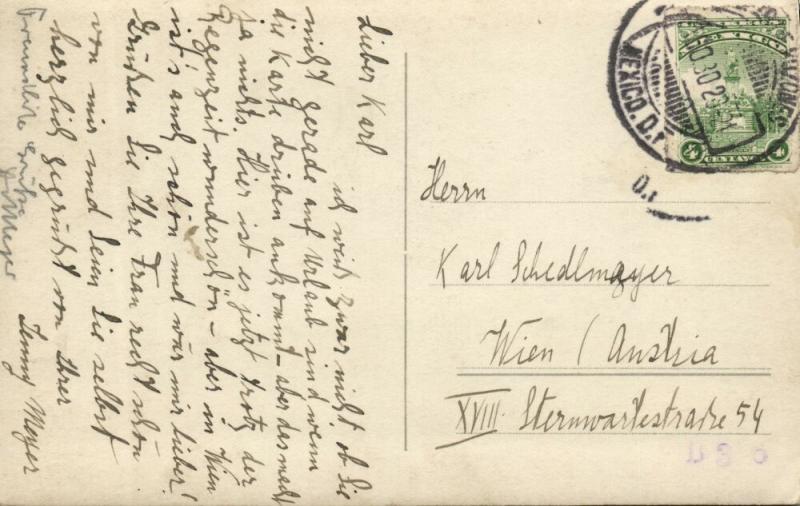 Lieber Karl
ich weiß zwar nicht, ob Sie
nicht gerade auf Urlaub sind wenn
die Karte drüben ankommt – aber das macht
ja nichts. Hier ist es jetzt trotz der
Regenzeit wunderschön – aber in Wien
ist's auch schön und wär mir lieber!
Grüßen Sie Ihre Frau recht schön
von mir und seien Sie selbst
herzlich gegrüßt von Ihrer
Jenny Mayer
Freundliche Grüße
Mayer
MEXICO
4 CENTAVOS 4
MEXICO. D.F.
Herrn
Karl Schedlmayer
Wien / Austria
XVIII. Sternwartestraße 54